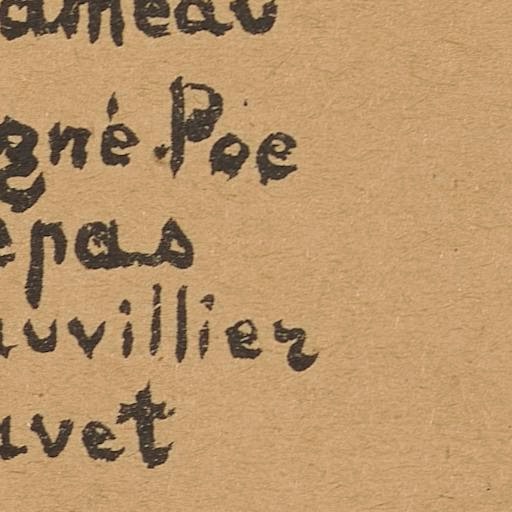 ameau
gné-Poe
epas
auvillier
uvet